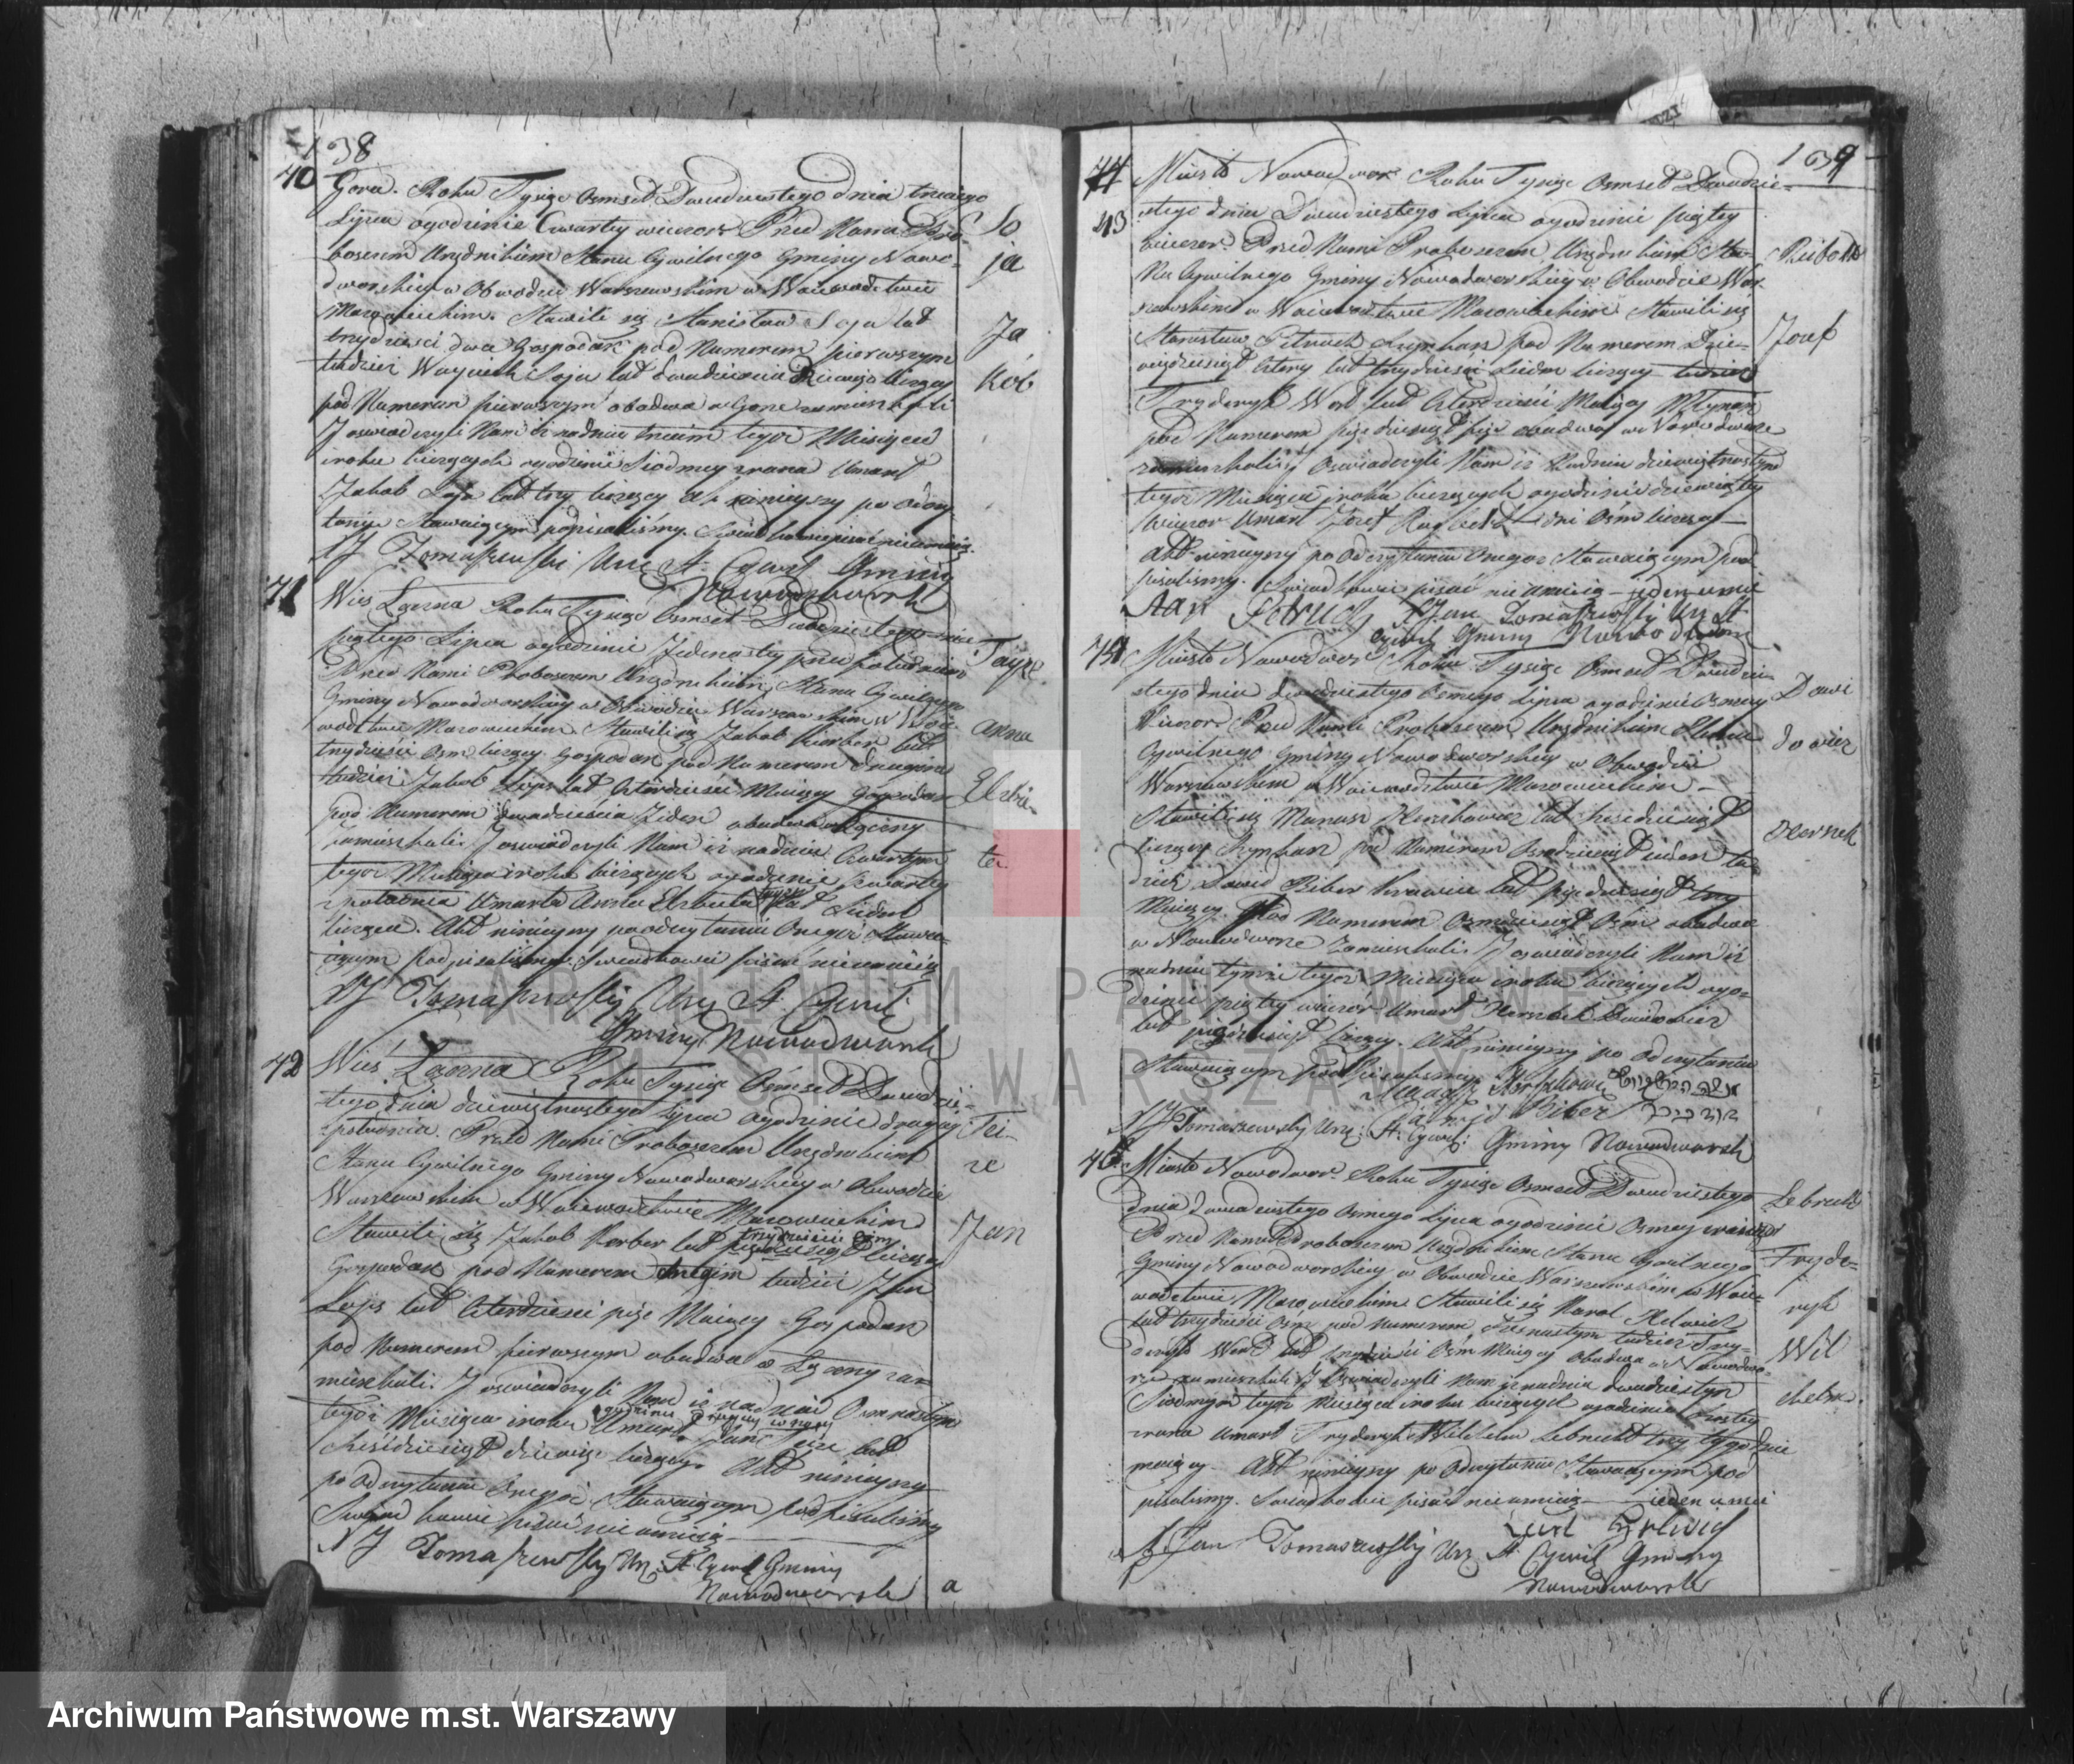 138
40
Gora. Roku Tysiąc Osmset Dwudziestego dnia trzeciego
Lipca ogodzinie Czwartey wieczor Przed Nami Pro-
boszczem Urzędnikiem Stanu Cywilnego Gminy Nowo-
dworskiey w Obwodzie Warszawskim w Woiewodztwie
Mazowieckim. Stawili się Stanisław Soja lat
trzydzieści dwa Gospodarz pod Numerem pierwszym
tudzież Woyciech Soja lat dwadzieścia liczący
pod Numerem pierwszym obadwa w Gorze zamieszkali
J oswiadczyli Nam iż nadniu trzecim tegoż Miesiąca
iroku bieżących ogodzinie Siódmey zrana Umarł
Jakob Soja lat trzy liczący Akt ninieyszy po Odczy-
taniu Stawaiącym podpisaliśmy. Swiadkowie pisać nieumieią.
XJ Tomaszewski Urz St. Cywil Gminy
Nowodworsk
So
ja
Ja
kób
41
Wies Łączna Roku Tysiąc Osmset Dwudziestego dnia
piątego Lipca ogodzinie Jedenastey przed południem
Przed Nami Proboszczem Urzędnikiem Stanu Cywilnego
Gminy Nowodworskiey w Obwodzie Warszawskim w Woie-
wodztwie Mazowieckim Stawili się Jakob Kerber lat
trzydzieści Osm liczący Gospodarz pod Numerem drugim
tudzież Jakob Leps lat Czterdzieści Maiący Gospodarz
pod Numerem dwadzieścia Jeden obadwa w Łączny
zamieszkali. J oswiadczyli Nam iż nadniu Czwartym
tegoż Miesiąca iroku bieżących ogodzinie Czwartey
zpołudnia Umarła Anna Elzbieta lat Siedm
licząca. Akt ninieyszy poodczytaniu Onegoż Stawa-
iącym podpisaliśmy. Swiadkowie pisać nieumieią
XJ Tomaszewski Urz St. Cywil:
Gminy Nowodworsk
Anna
Elzbie-
ta
42
Wieś Łączna Roku Tysiąc Osmset Dwudzies-
tego dnia dziewiętnastego Lipca ogodzinie drugiey
zpołudnia. Przed Nami Proboszczem Urzędnikiem
Stanu Cywilnego Gminy Nowodworskiey w Obwodzie
Warszawskim w Woiewodztwie Mazowieckim
Stawili się Jakob Kerber lat trzydzieści Osm liczący
Gospodarz pod Numerem drugim tudzież Jan
Leps lat Czterdzieści pięć Maiący Gospodarz
pod Numerem pierwszym obadwa w Łączny za-
mieszkali. J oswiadczyli Nam iż nadniu Osmnastym
tegoż Miesiąca iroku ogodzinie drugiey w nocy Umarł Jan lat
sześćdziesiąt dziewięć liczący. Akt ninieyszy
po Odczytaniu Onegoż Stawaiącym podpisaliśmy
Swiadkowie pisać nieumieią
XJ Tomaszewski Urz: St Cywil Gminy
Nowodworsk
Jan
a
139
43
Miasto Nowodwor Roku Tysiąc Osmset Dwudzie-
stego dnia Dwudziestego Lipca ogodzinie piątey
wieczor. Przed Nami Proboszczem Urzędnikiem Sta-
nu Cywilnego Gminy Nowodworskiey w Obwodzie War-
szawskim w Woiewodztwie Mazowieckim Stawili się
Stanisław Petruch Szynkarz pod Numerem Dzie-
więdziesiąt Cztery lat trzydzieści siedm liczący tudzież
Fryderyk Word lat Czterdzieści Maiący Młynarz
pod Numerem pięćdziesiąt pięć obadwa w Nowodworze
zamieszkali J Oswiadczyli Nam iż Nadniu dziewiętnastym
tegoż Miesiąca iroku bieżących ogodzinie dziewiątey
Wieczor Umarł Józef dni Osm liczący
Akt ninieyszy po Odczytaniu Onegoż Stawaiącym pod-
pisaliśmy. Swiadkowie pisać nieumieią jeden umie
Stan Petruch XJan Tomaszewski Urz St
Cywil Gminy Nowodwors
Jozef
Miasto Nowodwor Roku Tysiąc Osmset Dwudzie-
stego dnia dwudziestego Osmego Lipca ogodzinie Osmey
Wieczor Przed Nami Proboszczem Urzędnikiem Stanu
Cywilnego Gminy Nowodworskiey w Obwodzie
Warszawskim w Woiewodztwie Mazowieckim
Stawili się Manasz Herszkowicz lat sześćdziesiąt
liczący Szynkarz pod Numerem Osmdziesiąt ieden tu-
dzież Dawid Biber Krawiec lat pięćdziesiąt trzy
Maiący Pod Numerem Osmdziesiąt Osm obadwa
w Nowodworze Zamieszkali. J oswiadczyli Nam iż
nadniu tymże tegoż Miesiąca iroku bieżących ogo-
dzinie piątey wieczór Umarł Herszek Dawidowicz
lat pięćdziesiąt liczący. Akt ninieyszy po Odczytaniu
Stawaiącym podpisaliśmy
Dawid Biber
XJ Tomaszewski Urz: St: Cywil: Gminy Nowodworsk
Dawi
dowicz
Herszek
Miasto Nowodwor. Roku Tysiąc Osmset Dwudziestego
dnia dwudziestego Osmego Lipca ogodzinie Osmey
Przed Nami Proboszczem Urzędnikiem Stanu Cywilnego
Gminy Nowodworskiey w Obwodzie Warszawskim w Woie-
wodztwie Mazowieckim Stawili się Karol Helwich
lat trzydzieści Osm pod Numerem tudzież Fry-
deryk Word lat trzydzieści Osm Maiący obadwa w Nowodwo-
rze zamieszkali J Oswiadczyli Nam iż nadniu dwudziestym
Siodmym tegoż Miesiąca iroku bieżących ogodzinie szostey
zrana Umarł Fryderyk Wilhelm Lebrecht trzy tygodnie
maiący Akt ninieyszy po Odczytaniu Stawaiącym pod-
pisaliśmy. Swiadkowie pisać nieumieią jeden umie
Carl Helwich
XJan Tomaszewski Urz St Cywil Gminy
Nowodworsk
Lebrecht
Fryde-
ryk
Wil
helm.
ARCHIWUM PAŃSTWOWE
M.ST. WARSZAWY
Archiwum Państwowe m.st. Warszawy